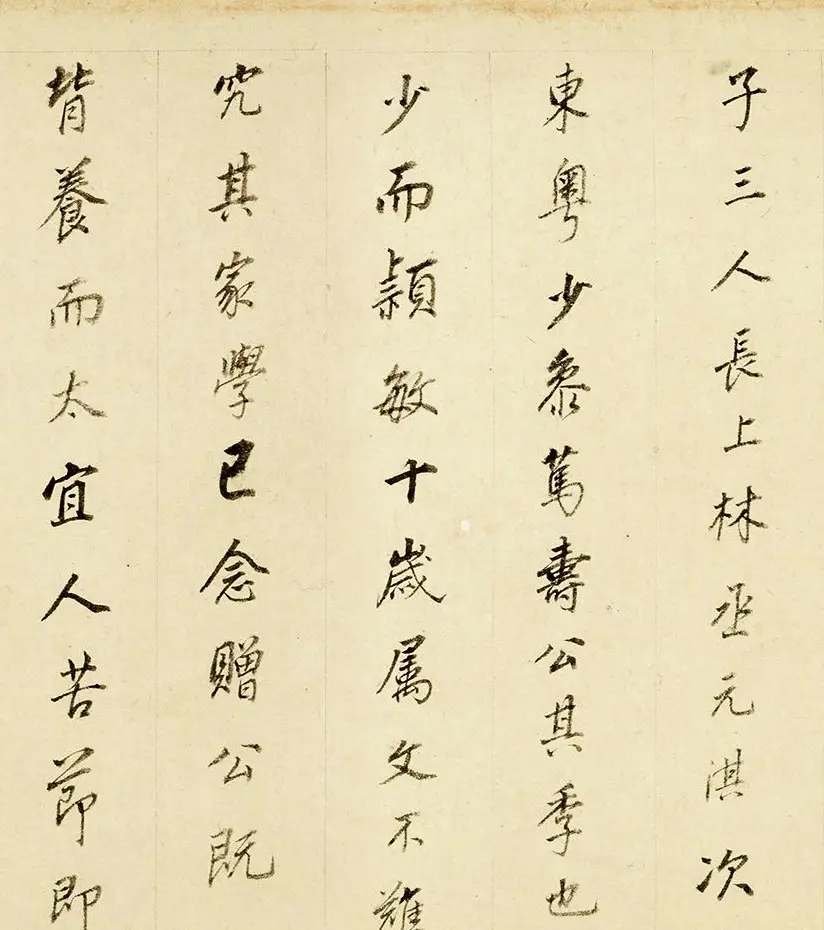 子三人長上林丞元淇次
東粵少參篤壽公其季也
少而頴敏十歳属文不難
究其家學已念贈公既
背養而太宜人苦節即